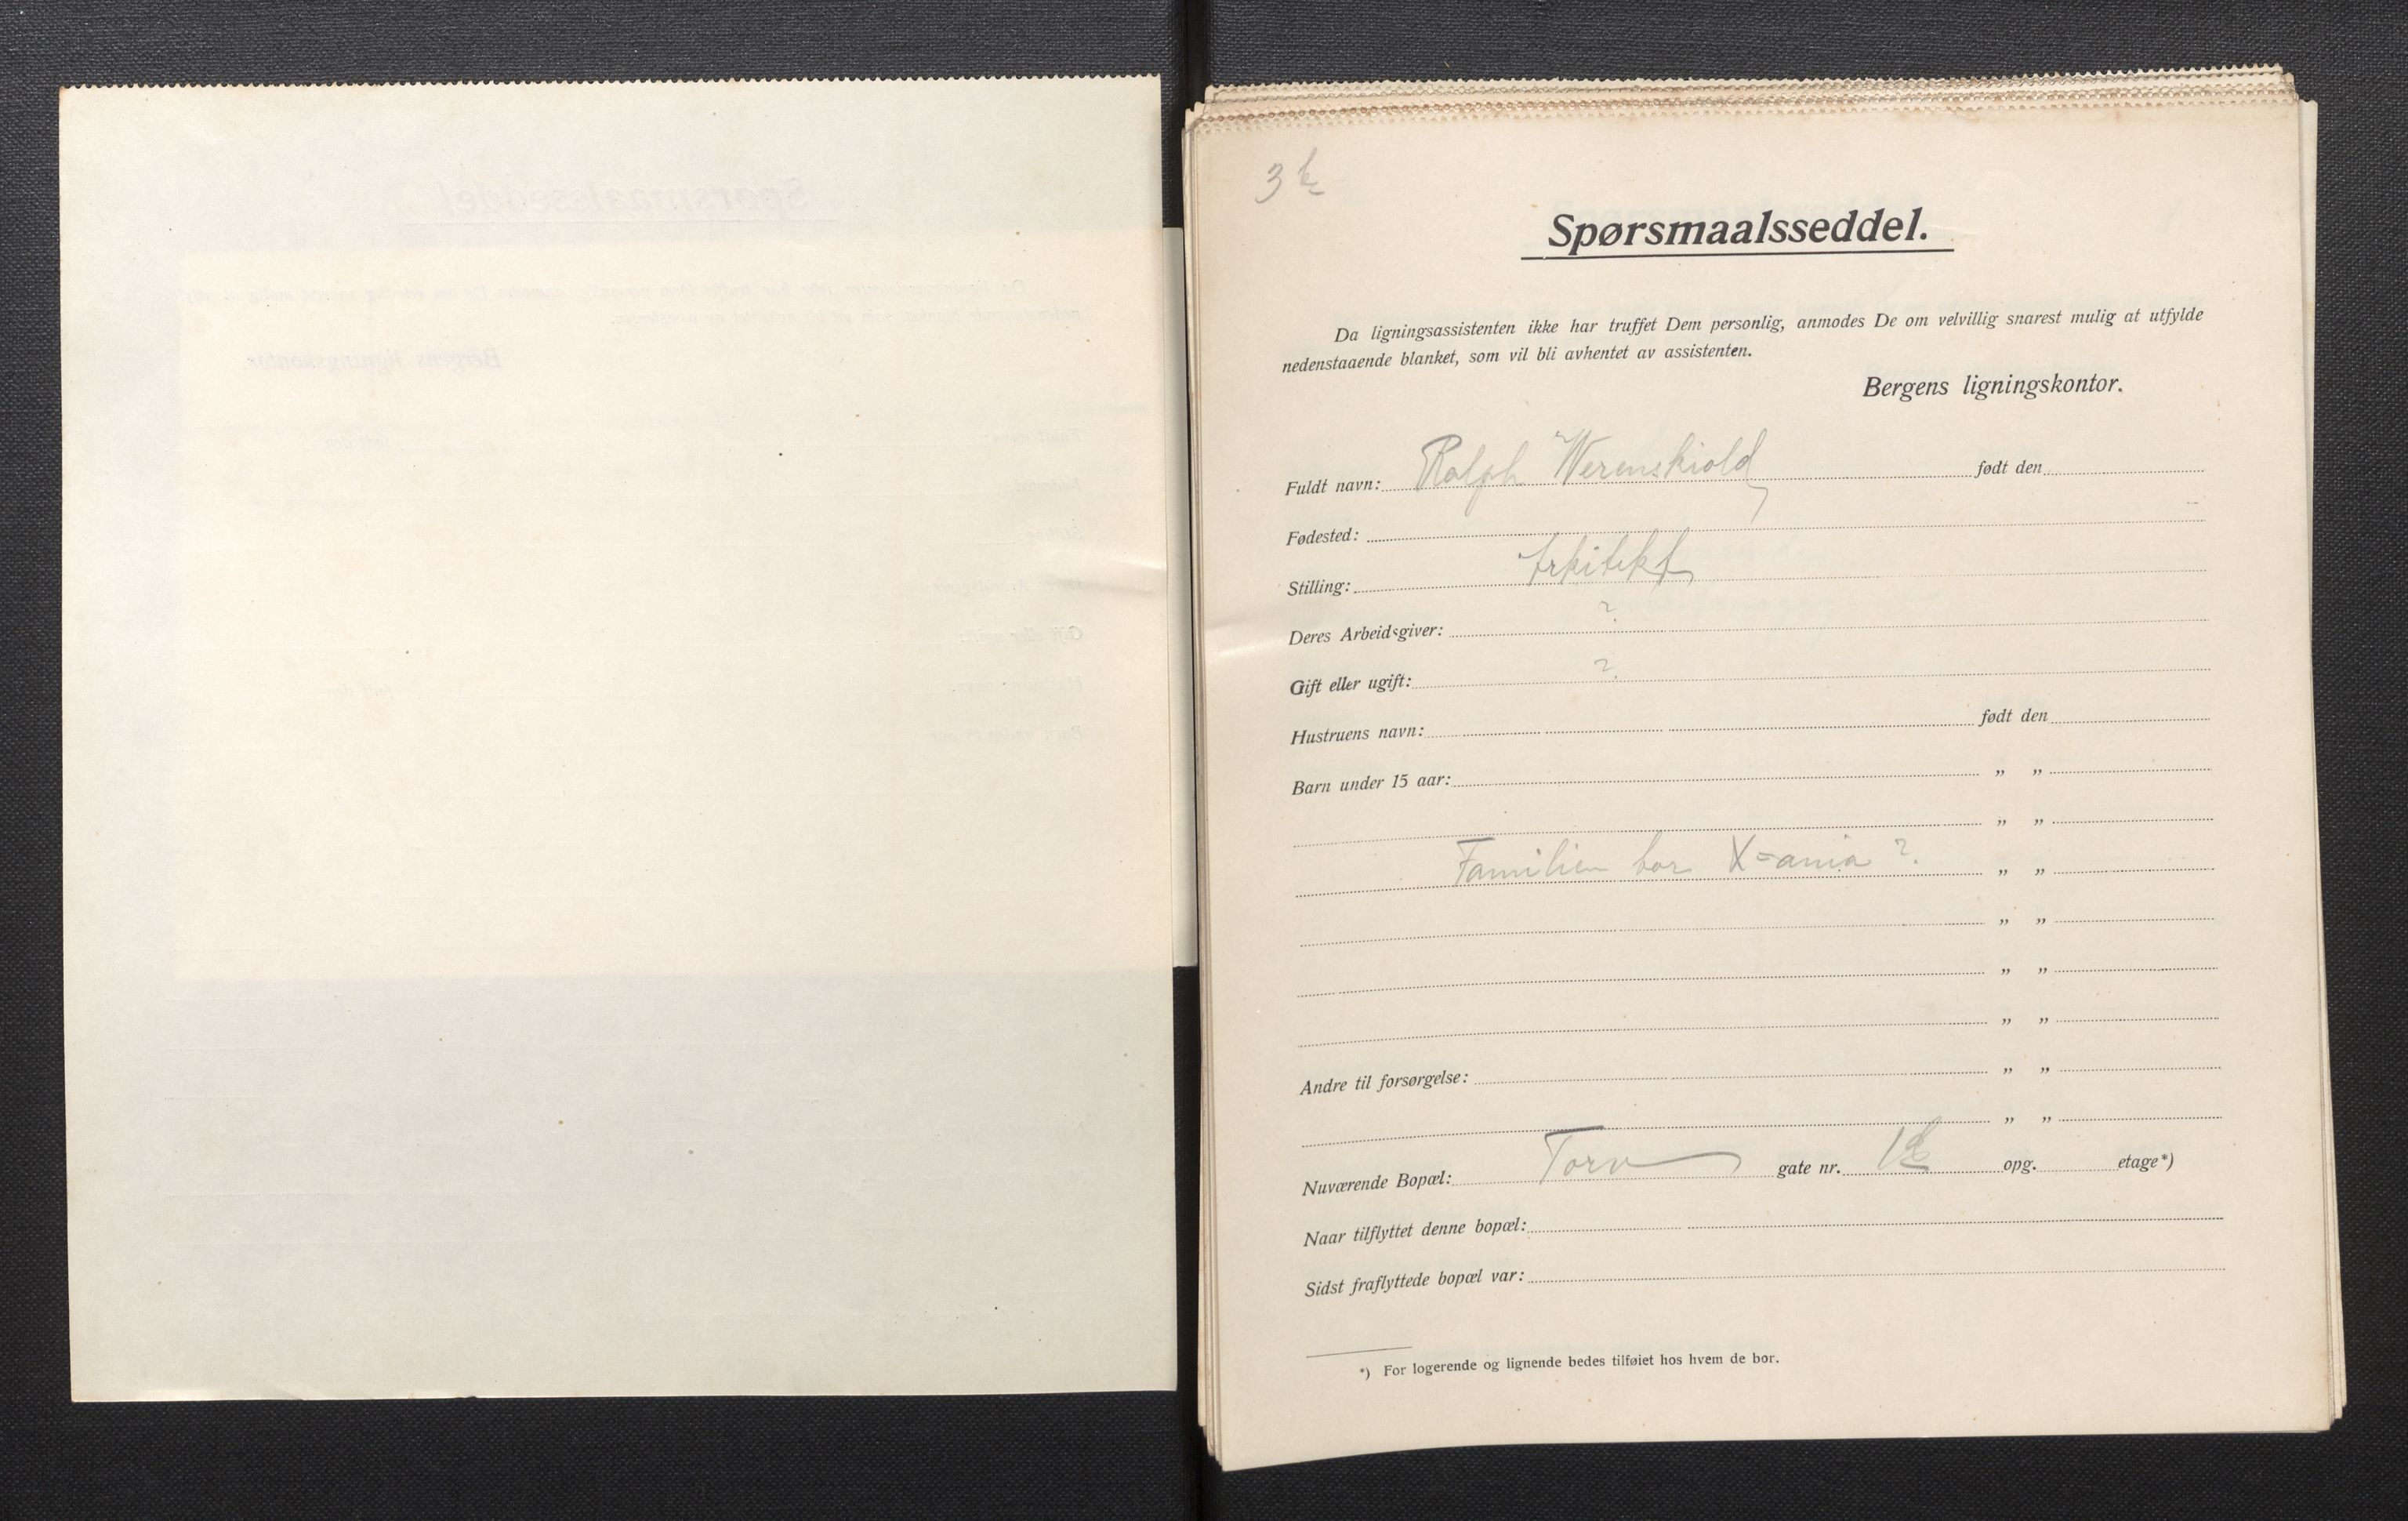 3 k
Spørsmaalsseddel.
Da ligningsassistenten ikke har truffet Dem personlig, anmodes De om velvillig snarest mulig at utfylde
nedenstaaende blanket, som vil bli avhentet av assistenten.
Bergens ligningskontor.
Fuldt navn: Ralph Werenskiold født den
Fødested:
Stilling: Arkitekt
Deres Arbeidsgiver: ?
Gift eller ugift: ?
Hustruens navn: født den
Barn under 15 aar: " "
" "
Familien bor X=ania ? " "
" "
" "
" "
Andre til forsørgelse: " "
" "
Nuværende Bopæl: Torv gate nr. opg. etage*)
Naar tilflyttet denne bopæl:
Sidst fraflyttede bopæl var:
*) For logerende og lignende bedes tilføiet hos hvem de bor.